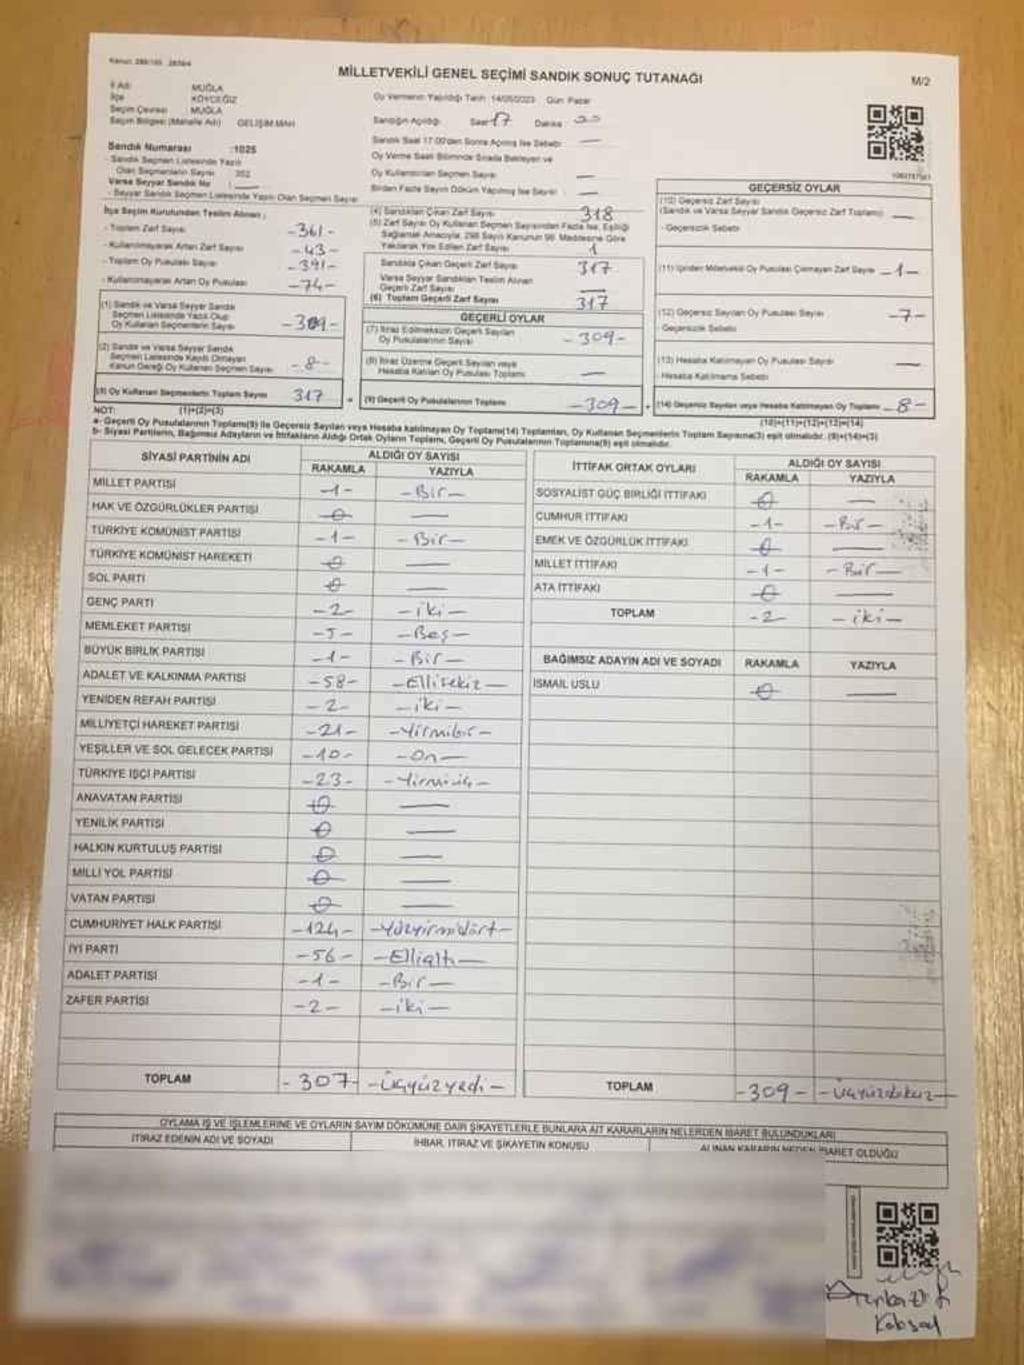 MİLLETVEKİLİ GENEL SEÇİMİ SANDIK SONUÇ TUTANAĞI
M/2
İl Adı MUĞLA
İlçe KÖYCEĞİZ
Seçim Çevresi MUĞLA
Seçim Bölgesi (Mahalle Adı) GELİŞİM MAH
Oy Vermenin Yapıldığı Tarih 14/05/2023 Gün Pazar
Sandığın Açıldığı Saat 17 Dakika
Sandık Saat 17:00'den Sonra Açılmış İse Sebebi —
Oy Verme Saati Bitiminde Sırada Bekleyen ve
Oy Kullandırılan Seçmen Sayısı —
Birden Fazla Sayım Döküm Yapılmış İse Sayısı —
Sandık Numarası :1025
- Sandık Seçmen Listesinde Yazılı
Olan Seçmenlerin Sayısı 352
Varsa Seyyar Sandık No : —
- Seyyar Sandık Seçmen Listesinde Yazılı Olan Seçmen Sayısı
İlçe Seçim Kurulundan Teslim Alınan ;
- Toplam Zarf Sayısı -361-
- Kullanılmayarak Artan Zarf Sayısı -43-
- Toplam Oy Pusulası Sayısı -391-
- Kullanılmayarak Artan Oy Pusulası -74-
(1) Sandık ve Varsa Seyyar Sandık
Seçmen Listesinde Yazılı Olup
Oy Kullanan Seçmenlerin Sayısı -309-
(2) Sandık ve Varsa Seyyar Sandık
Seçmen Listesinde Kaydı Olmayan
Kanun Gereği Oy Kullanan Seçmen Sayısı -8-
(3) Oy Kullanan Seçmenlerin Toplam Sayısı 317
(1)+(2)=(3)
(4) Sandıktan Çıkan Zarf Sayısı 318
(5) Zarf Sayısı Oy Kullanan Seçmen Sayısından Fazla İse, Eşitliği
Sağlamak Amacıyla, 298 Sayılı Kanunun 98. Maddesine Göre
Yakılarak Yok Edilen Zarf Sayısı 1
Sandıkta Çıkan Geçerli Zarf Sayısı 317
Varsa Seyyar Sandıktan Teslim Alınan
Geçerli Zarf Sayısı —
(6) Toplam Geçerli Zarf Sayısı 317
GEÇERLİ OYLAR
(7) İtiraz Edilmeksizin Geçerli Sayılan
Oy Pusulalarının Sayısı -309-
(8) İtiraz Üzerine Geçerli Sayılan veya
Hesaba Katılan Oy Pusulası Toplamı —
(9) Geçerli Oy Pusulalarının Toplamı -309-
GEÇERSİZ OYLAR
(10) Geçersiz Zarf Sayısı
(Sandık ve Varsa Seyyar Sandık Geçersiz Zarf Toplamı) —
- Geçersizlik Sebebi
(11) İçinden Milletvekili Oy Pusulası Çıkmayan Zarf Sayısı -1-
(12) Geçersiz Sayılan Oy Pusulası Sayısı -7-
- Geçersizlik Sebebi
(13) Hesaba Katılmayan Oy Pusulası Sayısı —
- Hesaba Katılmama Sebebi
(14) Geçersiz Sayılan veya Hesaba Katılmayan Oy Toplamı -8-
(10)+(11)+(12)+(13)=(14)
NOT:
a- Geçerli Oy Pusulalarının Toplamı(9) ile Geçersiz Sayılan veya Hesaba Katılmayan Oy Toplamı(14) Toplamları, Oy Kullanan Seçmenlerin Toplam Sayısına(3) eşit olmalıdır. (9)+(14)=(3)
b- Siyasi Partilerin, Bağımsız Adayların ve İttifakların Aldığı Ortak Oyların Toplamı, Geçerli Oy Pusulalarının Toplamına(9) eşit olmalıdır.
SİYASİ PARTİNİN ADI ALDIĞI OY SAYISI
RAKAMLA YAZIYLA
MİLLET PARTİSİ -1- -Bir-
HAK VE ÖZGÜRLÜKLER PARTİSİ 0 —
TÜRKİYE KOMÜNİST PARTİSİ -1- -Bir-
TÜRKİYE KOMÜNİST HAREKETİ 0 —
SOL PARTİ 0 —
GENÇ PARTİ -2- -iki-
MEMLEKET PARTİSİ -5- -Beş-
BÜYÜK BİRLİK PARTİSİ -1- -Bir-
ADALET VE KALKINMA PARTİSİ -58- -Ellisekiz-
YENİDEN REFAH PARTİSİ -2- -iki-
MİLLİYETÇİ HAREKET PARTİSİ -21- -Yirmibir-
YEŞİLLER VE SOL GELECEK PARTİSİ -10- -On-
TÜRKİYE İŞÇİ PARTİSİ -23- -Yirmiüç-
ANAVATAN PARTİSİ 0 —
YENİLİK PARTİSİ 0 —
HALKIN KURTULUŞ PARTİSİ 0 —
MİLLİ YOL PARTİSİ 0 —
VATAN PARTİSİ 0 —
CUMHURİYET HALK PARTİSİ -124- -Yüzyirmidört-
İYİ PARTİ -56- -Ellialtı-
ADALET PARTİSİ -1- -Bir-
ZAFER PARTİSİ -2- -iki-
TOPLAM -307- -Üçyüzyedi-
İTTİFAK ORTAK OYLARI ALDIĞI OY SAYISI
RAKAMLA YAZIYLA
SOSYALİST GÜÇ BİRLİĞİ İTTİFAKI 0 —
CUMHUR İTTİFAKI -1- -Bir-
EMEK VE ÖZGÜRLÜK İTTİFAKI 0 —
MİLLET İTTİFAKI -1- -Bir-
ATA İTTİFAKI 0 —
TOPLAM -2- -iki-
BAĞIMSIZ ADAYIN ADI VE SOYADI RAKAMLA YAZIYLA
İSMAİL USLU 0 —
TOPLAM -309- -Üçyüzdokuz-
OYLAMA İŞ VE İŞLEMLERİNE VE OYLARIN SAYIM DÖKÜMÜNE DAİR ŞİKAYETLERLE BUNLARA AİT KARARLARIN NELERDEN İBARET BULUNDUKLARI
İTİRAZ EDENİN ADI VE SOYADI İHBAR, İTİRAZ VE ŞİKAYETİN KONUSU ALINAN KARARIN NEDEN İBARET OLDUĞU